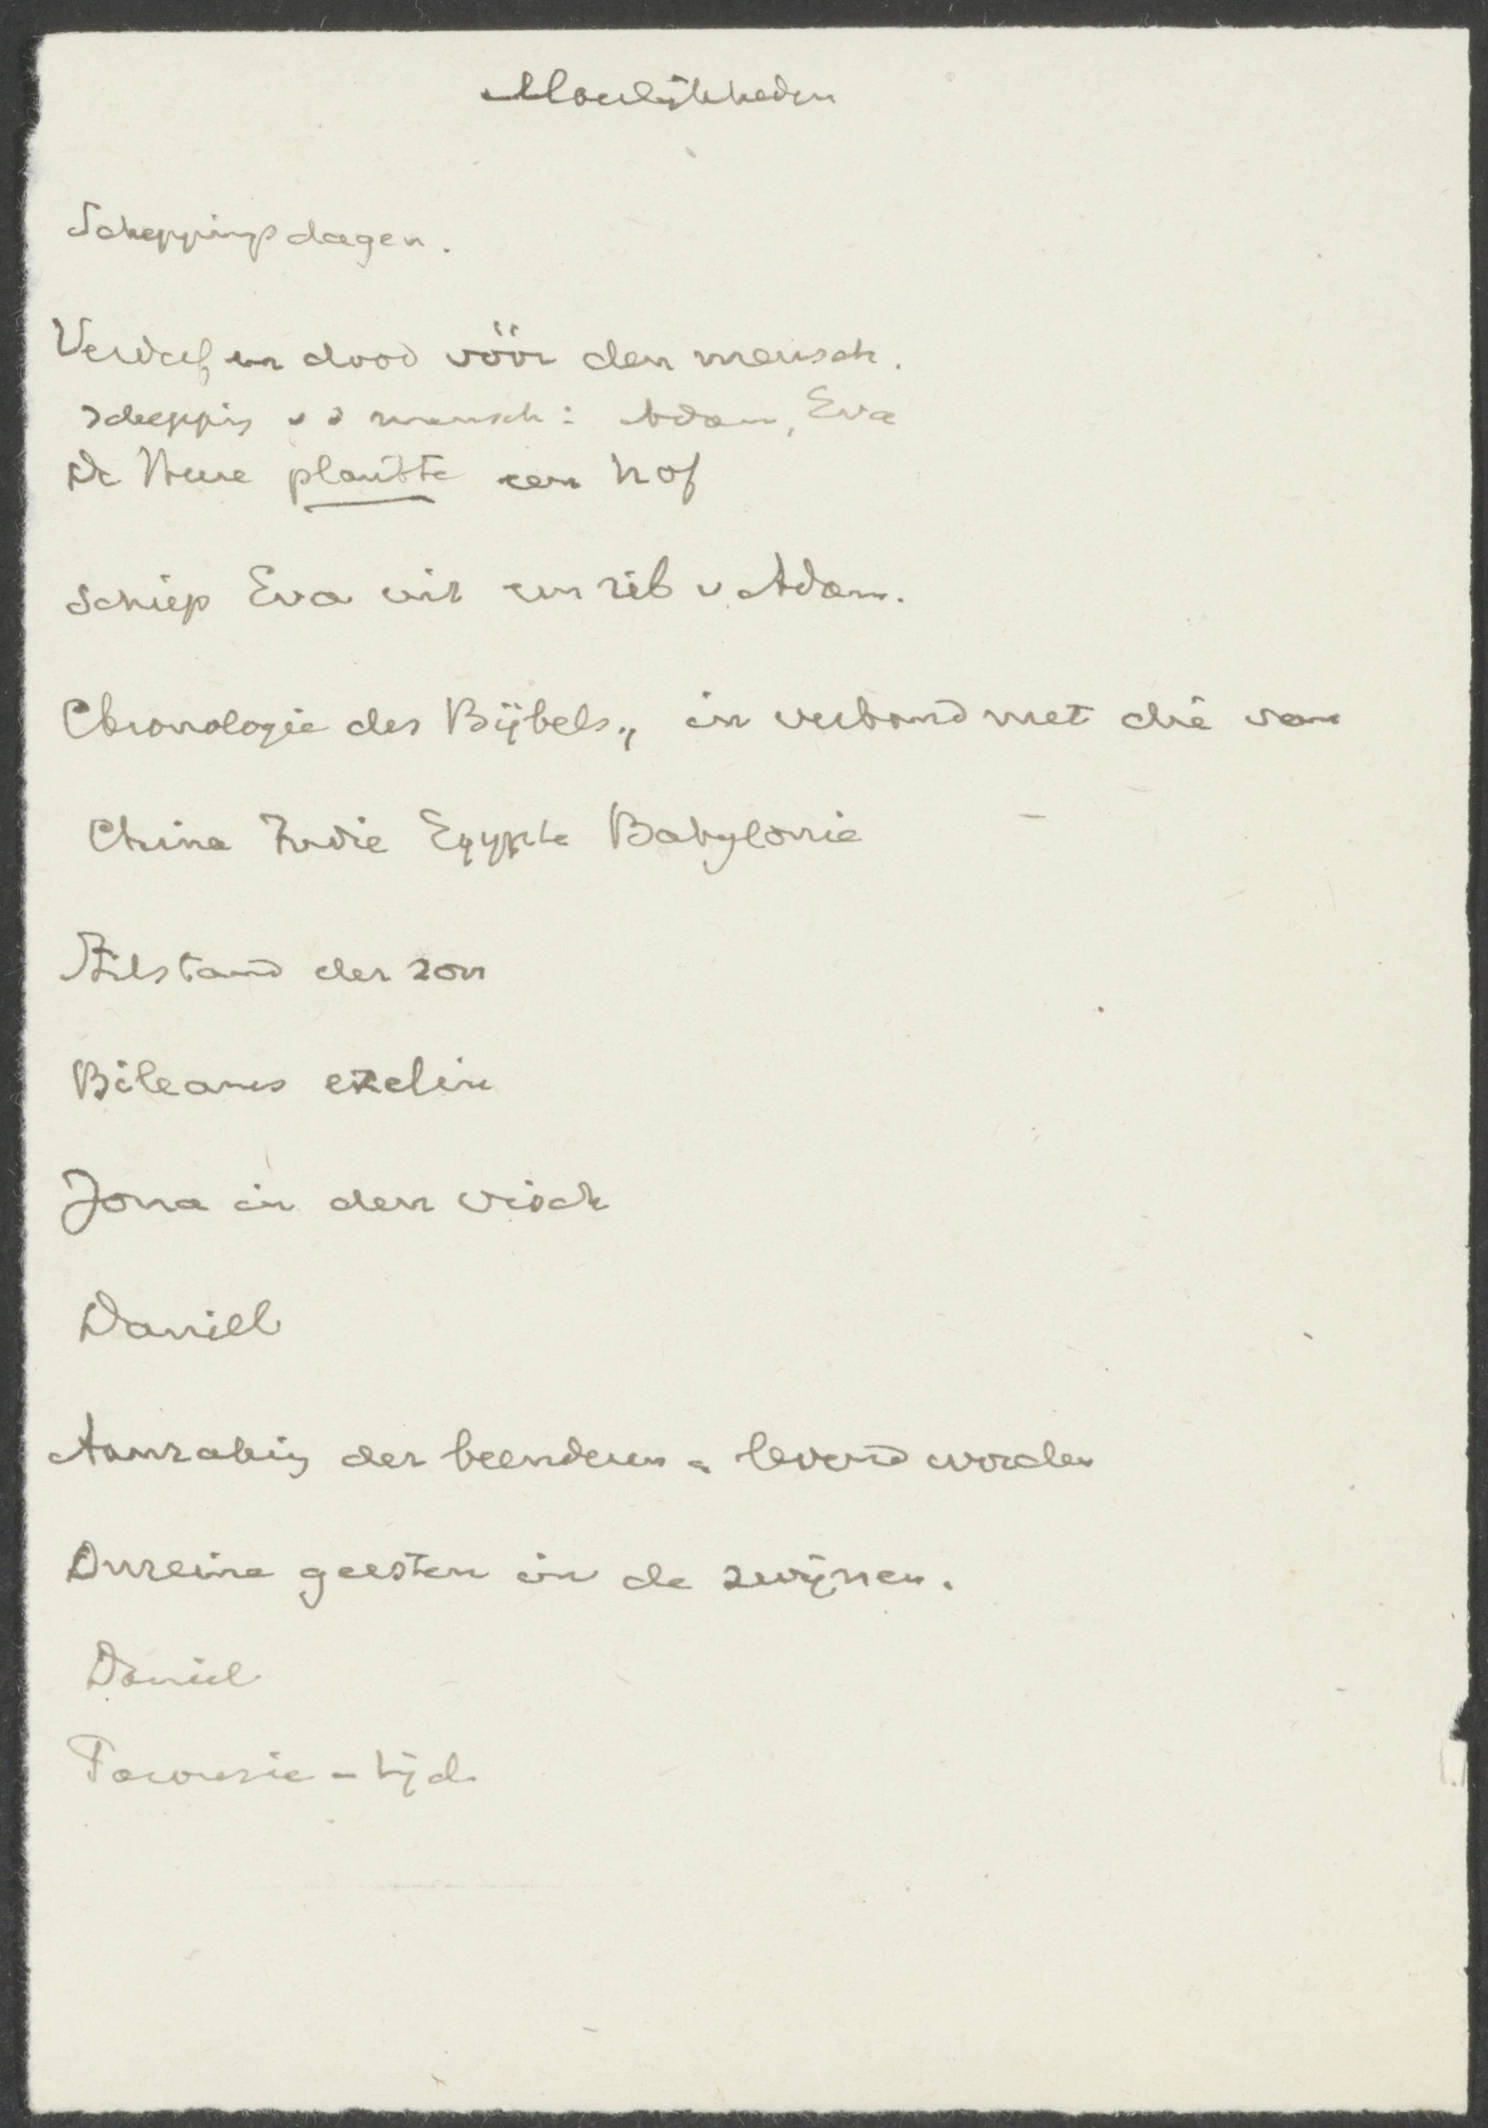 Moeilijkheden
Scheppingsdagen.
Verderf en dood vóór den mensch.
Schepping v d mensch: Adam, Eva
De Heere plantte een hof
Schiep Eva uit een rib v Adam.
Chronologie des Bijbels, in verband met die van
China Indie Egypte Babylonie
Stilstand der zon
Bileams ezelin
Jona in den visch
Daniel
Aanraking der beenderen = levend worden
Onreine geesten in de zwijnen.
Daniel
Parousie - tijd